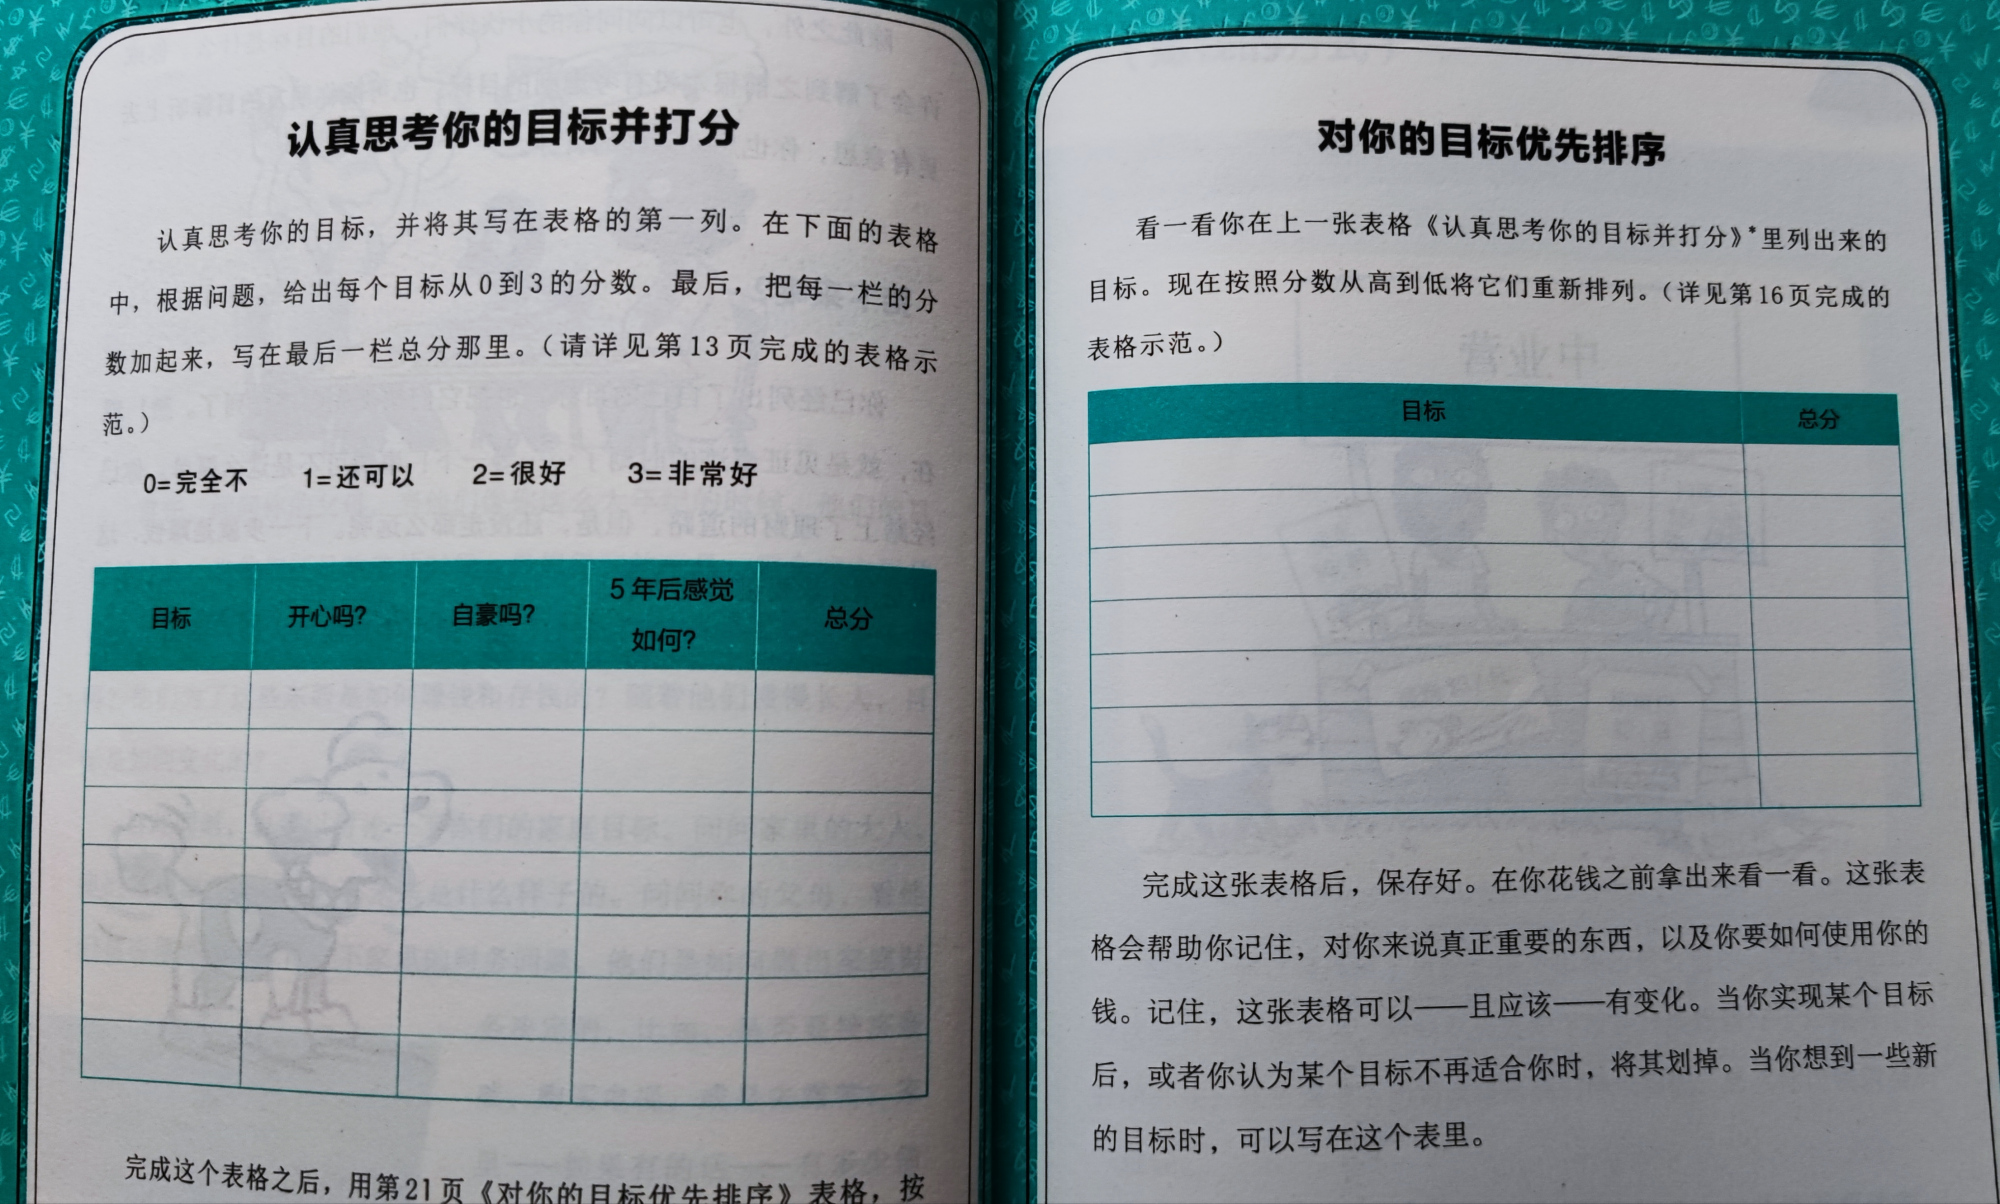 认真思考你的目标并打分
认真思考你的目标，并将其写在表格的第一列。在下面的表格
中，根据问题，给出每个目标从0到3的分数。最后，把每一栏的分
数加起来，写在最后一栏总分那里。（请详见第13页完成的表格示
范。）
0=完全不 1=还可以 2=很好 3=非常好
目标 开心吗？ 自豪吗？ 5年后感觉如何？ 总分
完成这个表格之后，用第21页《对你的目标优先排序》表格，按
对你的目标优先排序
看一看你在上一张表格《认真思考你的目标并打分》*里列出来的
目标。现在按照分数从高到低将它们重新排列。（详见第16页完成的
表格示范。）
目标 总分
完成这张表格后，保存好。在你花钱之前拿出来看一看。这张表
格会帮助你记住，对你来说真正重要的东西，以及你要如何使用你的
钱。记住，这张表格可以——且应该——有变化。当你实现某个目标
后，或者你认为某个目标不再适合你时，将其划掉。当你想到一些新
的目标时，可以写在这个表里。